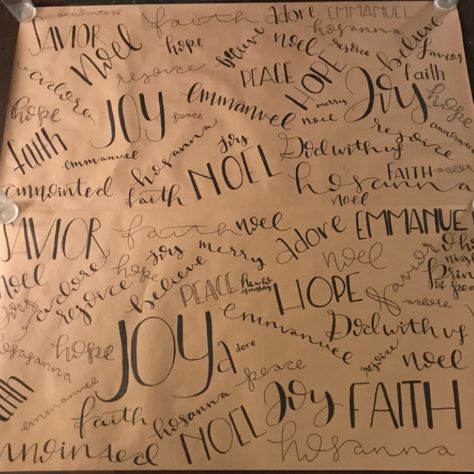 annointed
faith
adore
EMMANUEL
SAVIOR
Noel
hope
believe
noel
hosanna
rejoice
believe
savior
adore
rejoice
PEACE
HOPE
faith
hope
JOY
peace
emmanuel
merry
noel
Joy
hope
faith
emmanuel
hosanna
joy
God with us
rejoice
emmanuel
annointed
faith
NOEL
hosanna
noel
FAITH
adore
SAVIOR
faith
noel
adore
EMMANUEL
noel
adore
hope
joy
merry
noel
savior
rejoice
believe
PEACE
HOPE
adore
Joy
JOY
adore
emmanuel
God with us
hosanna
hope
peace
rejoice
noel
faith
emmanuel
faith
hosanna
NOEL
Joy
FAITH
annointed
hosanna